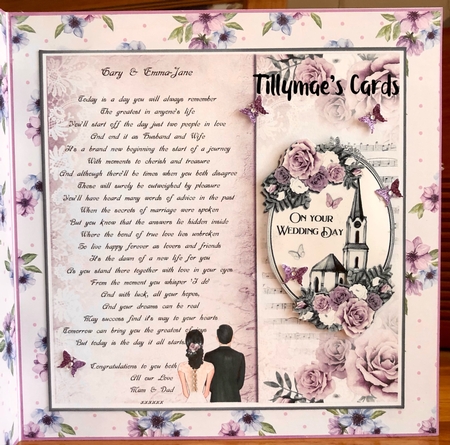 Gary & Emma-Jane
Today is a day you will always remember
The greatest in anyone's life
You'll start off the day just two people in love
And end it as Husband and Wife
It's a brand new beginning the start of a journey
With moments to cherish and treasure
And although there'll be times when you both disagree
These will surely be outweighed by pleasure
You'll have heard many words of advice in the past
When the secrets of marriage were spoken
But you know that the answers lie hidden inside
Where the bond of true love lies unbroken
So live happy forever as lovers and friends
It's the dawn of a new life for you
As you stand there together with love in your eyes
From the moment you whisper 'I do'
And with luck, all your hopes,
And your dreams can be real
May success find it's way to your hearts
Tomorrow can bring you the greatest of
But today is the day it all starts
Congratulations to you both
All our Love
Mum & Dad
xxxxxx
Tillymae's Cards
On your
Wedding Day